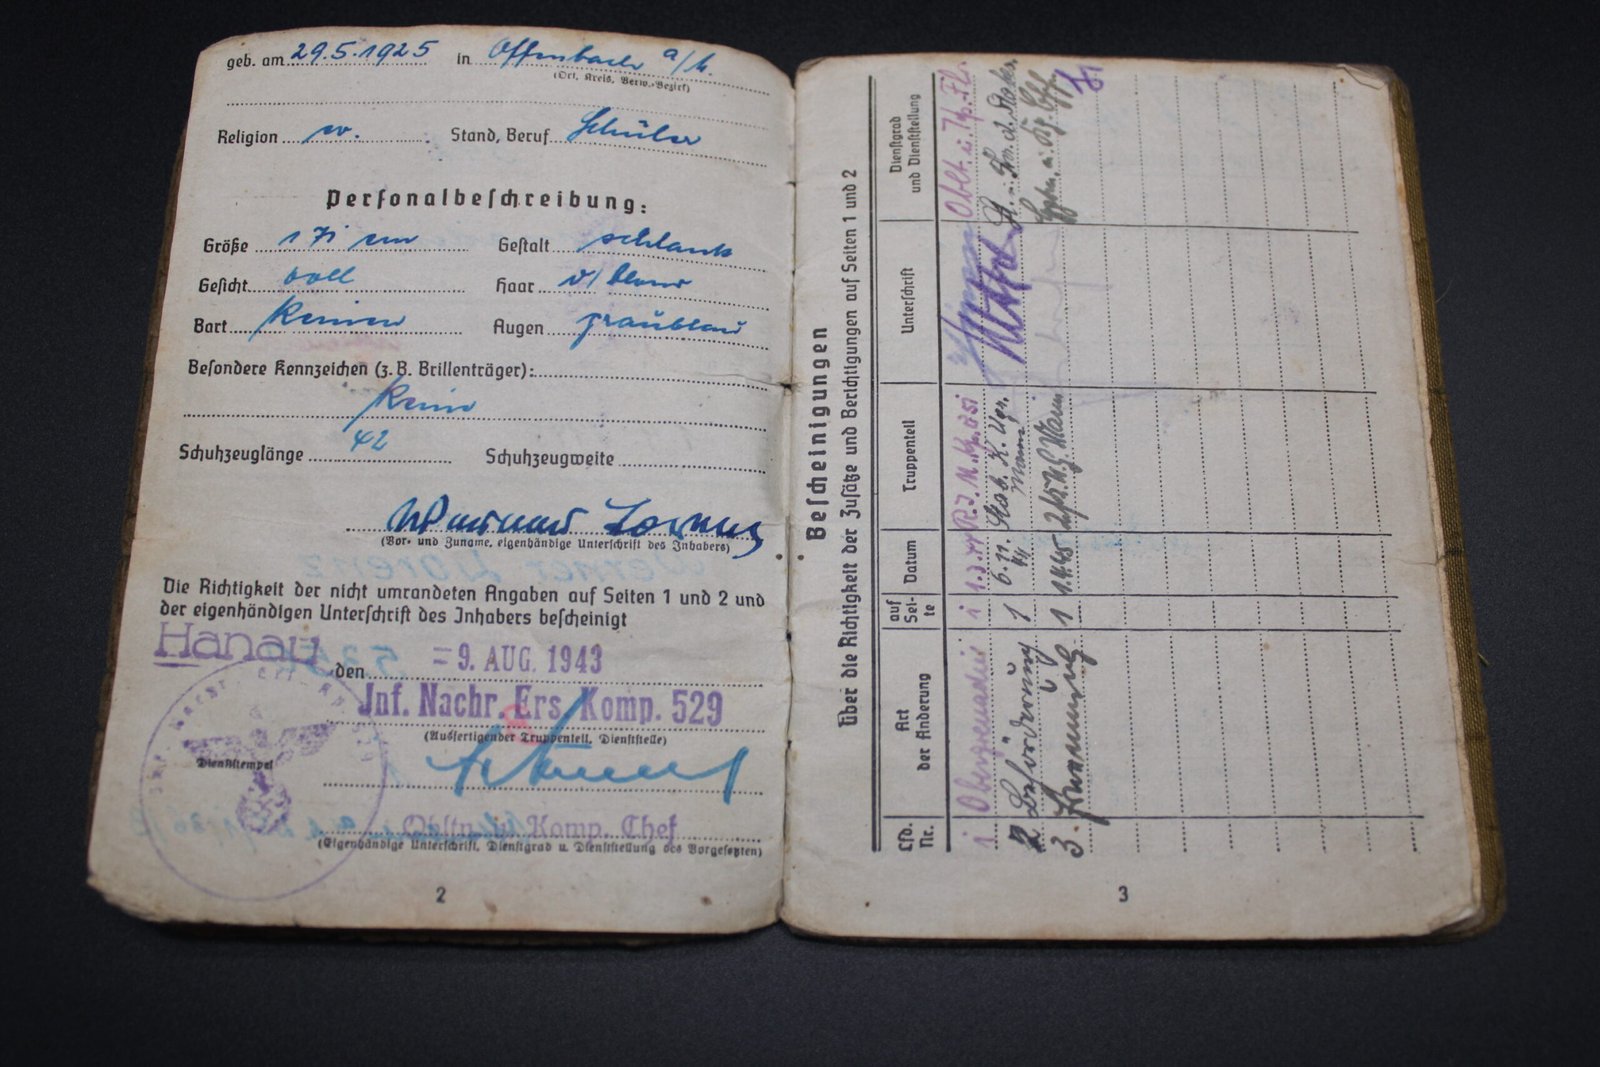 geb. am 29.5.1925 in Offenbach a/M.
(Ort, Kreis, Verw.-Bezirk)
Religion ev. Stand, Beruf Schüler
Personalbeschreibung:
Größe 171 cm Gestalt schlank
Gesicht voll Haar d/blond
Bart keinen Augen graublau
Besondere Kennzeichen (z. B. Brillenträger):
keine
Schuhzeuglänge 42 Schuhzeugweite
Werner Lorenz
(Vor- und Zuname, eigenhändige Unterschrift des Inhabers)
Die Richtigkeit der nicht umrandeten Angaben auf Seiten 1 und 2 und
der eigenhändigen Unterschrift des Inhabers bescheinigt
Hanau den = 9. AUG. 1943
Inf. Nachr. Ers. Komp. 529
(Ausfertigender Truppenteil, Dienststelle)
Dienststempel
Obltn. u. Komp. Chef
(Eigenhändige Unterschrift, Dienstgrad u. Dienststellung des Vorgesetzten)
2
Bescheinigungen
über die Richtigkeit der Zusätze und Berichtigungen auf Seiten 1 und 2
Lfd. Nr. Art der Änderung auf Seite Datum Truppenteil Unterschrift Dienstgrad und Dienststellung
1 Obergrenadier 1 Oblt. u.
2 Beförderung 1 6.11. 44
3. 1 1.4.45
3